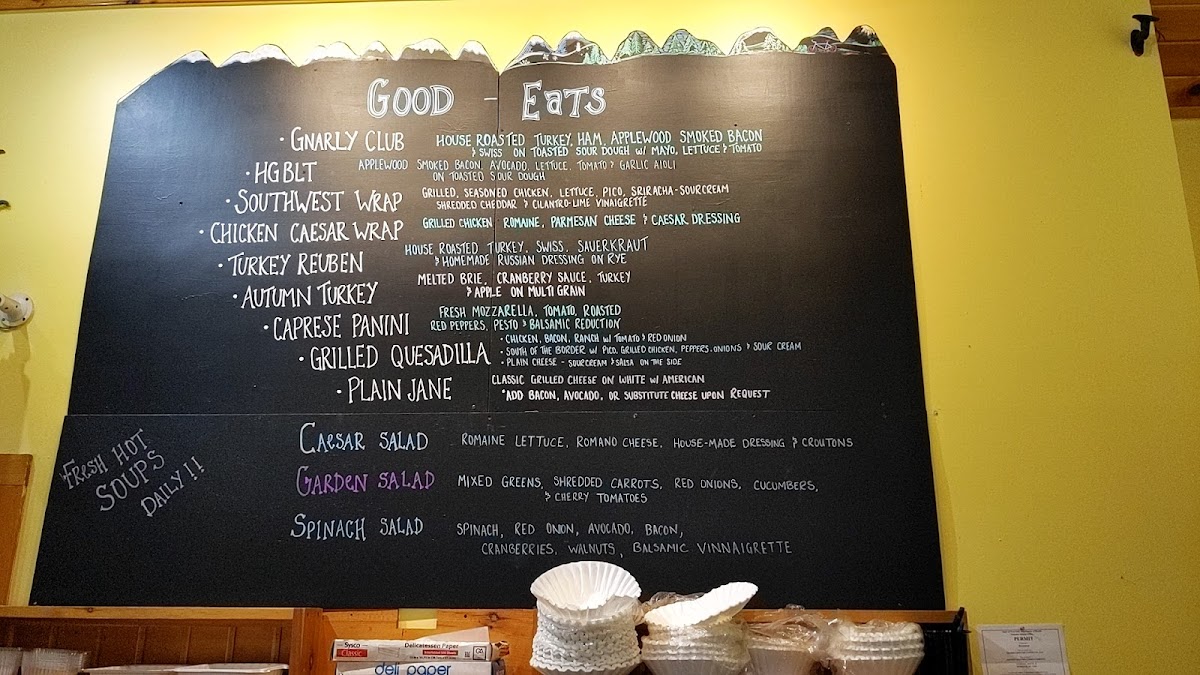 GOOD - EATS
• GNARLY CLUB HOUSE ROASTED TURKEY, HAM, APPLEWOOD SMOKED BACON
& SWISS ON TOASTED SOUR DOUGH W/ MAYO, LETTUCE & TOMATO
• HG BLT APPLEWOOD SMOKED BACON, AVOCADO, LETTUCE, TOMATO & GARLIC AIOLI
ON TOASTED SOUR DOUGH
• SOUTHWEST WRAP GRILLED, SEASONED CHICKEN, LETTUCE, PICO, SRIRACHA-SOURCREAM
SHREDDED CHEDDAR & CILANTRO-LIME VINAIGRETTE
• CHICKEN CAESAR WRAP GRILLED CHICKEN ROMAINE, PARMESAN CHEESE & CAESAR DRESSING
• TURKEY REUBEN HOUSE ROASTED TURKEY, SWISS, SAUERKRAUT
& HOMEMADE RUSSIAN DRESSING ON RYE
• AUTUMN TURKEY MELTED BRIE, CRANBERRY SAUCE, TURKEY
& APPLE ON MULTI GRAIN
• CAPRESE PANINI FRESH MOZZARELLA, TOMATO, ROASTED
RED PEPPERS, PESTO & BALSAMIC REDUCTION
• GRILLED QUESADILLA • CHICKEN, BACON, RANCH W/ TOMATO & RED ONION
• SOUTH OF THE BORDER W/ PICO, GRILLED CHICKEN, PEPPERS, ONIONS & SOUR CREAM
• PLAIN CHEESE - SOURCREAM & SALSA ON THE SIDE
• PLAIN JANE CLASSIC GRILLED CHEESE ON WHITE W/ AMERICAN
*ADD BACON, AVOCADO, OR SUBSTITUTE CHEESE UPON REQUEST
FRESH HOT
SOUPS
DAILY!!
CAESAR SALAD ROMAINE LETTUCE, ROMANO CHEESE, HOUSE-MADE DRESSING & CROUTONS
GARDEN SALAD MIXED GREENS, SHREDDED CARROTS, RED ONIONS, CUCUMBERS,
& CHERRY TOMATOES
SPINACH SALAD SPINACH, RED ONION, AVOCADO, BACON,
CRANBERRIES, WALNUTS, BALSAMIC VINNAIGRETTE
Sysco
Classic
Delicatessen Paper
deli paper
PERMIT